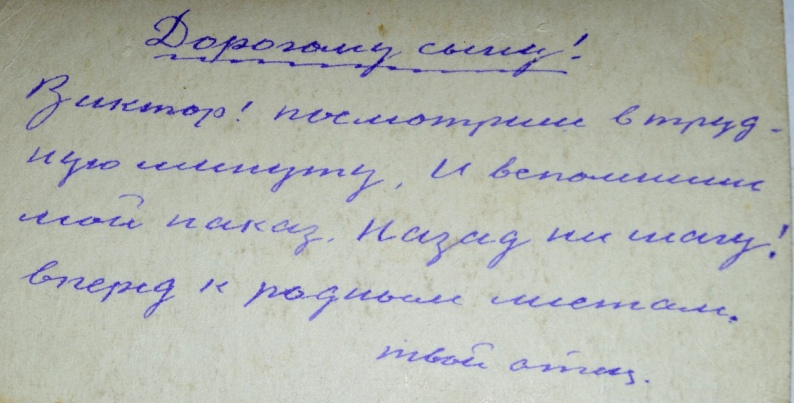 Дорогому сыну!
Виктор! посмотриш в труд-
ную минуту, И вспомниш
мой наказ. Назад ни шагу!
вперед к родным местам.
твой отец.